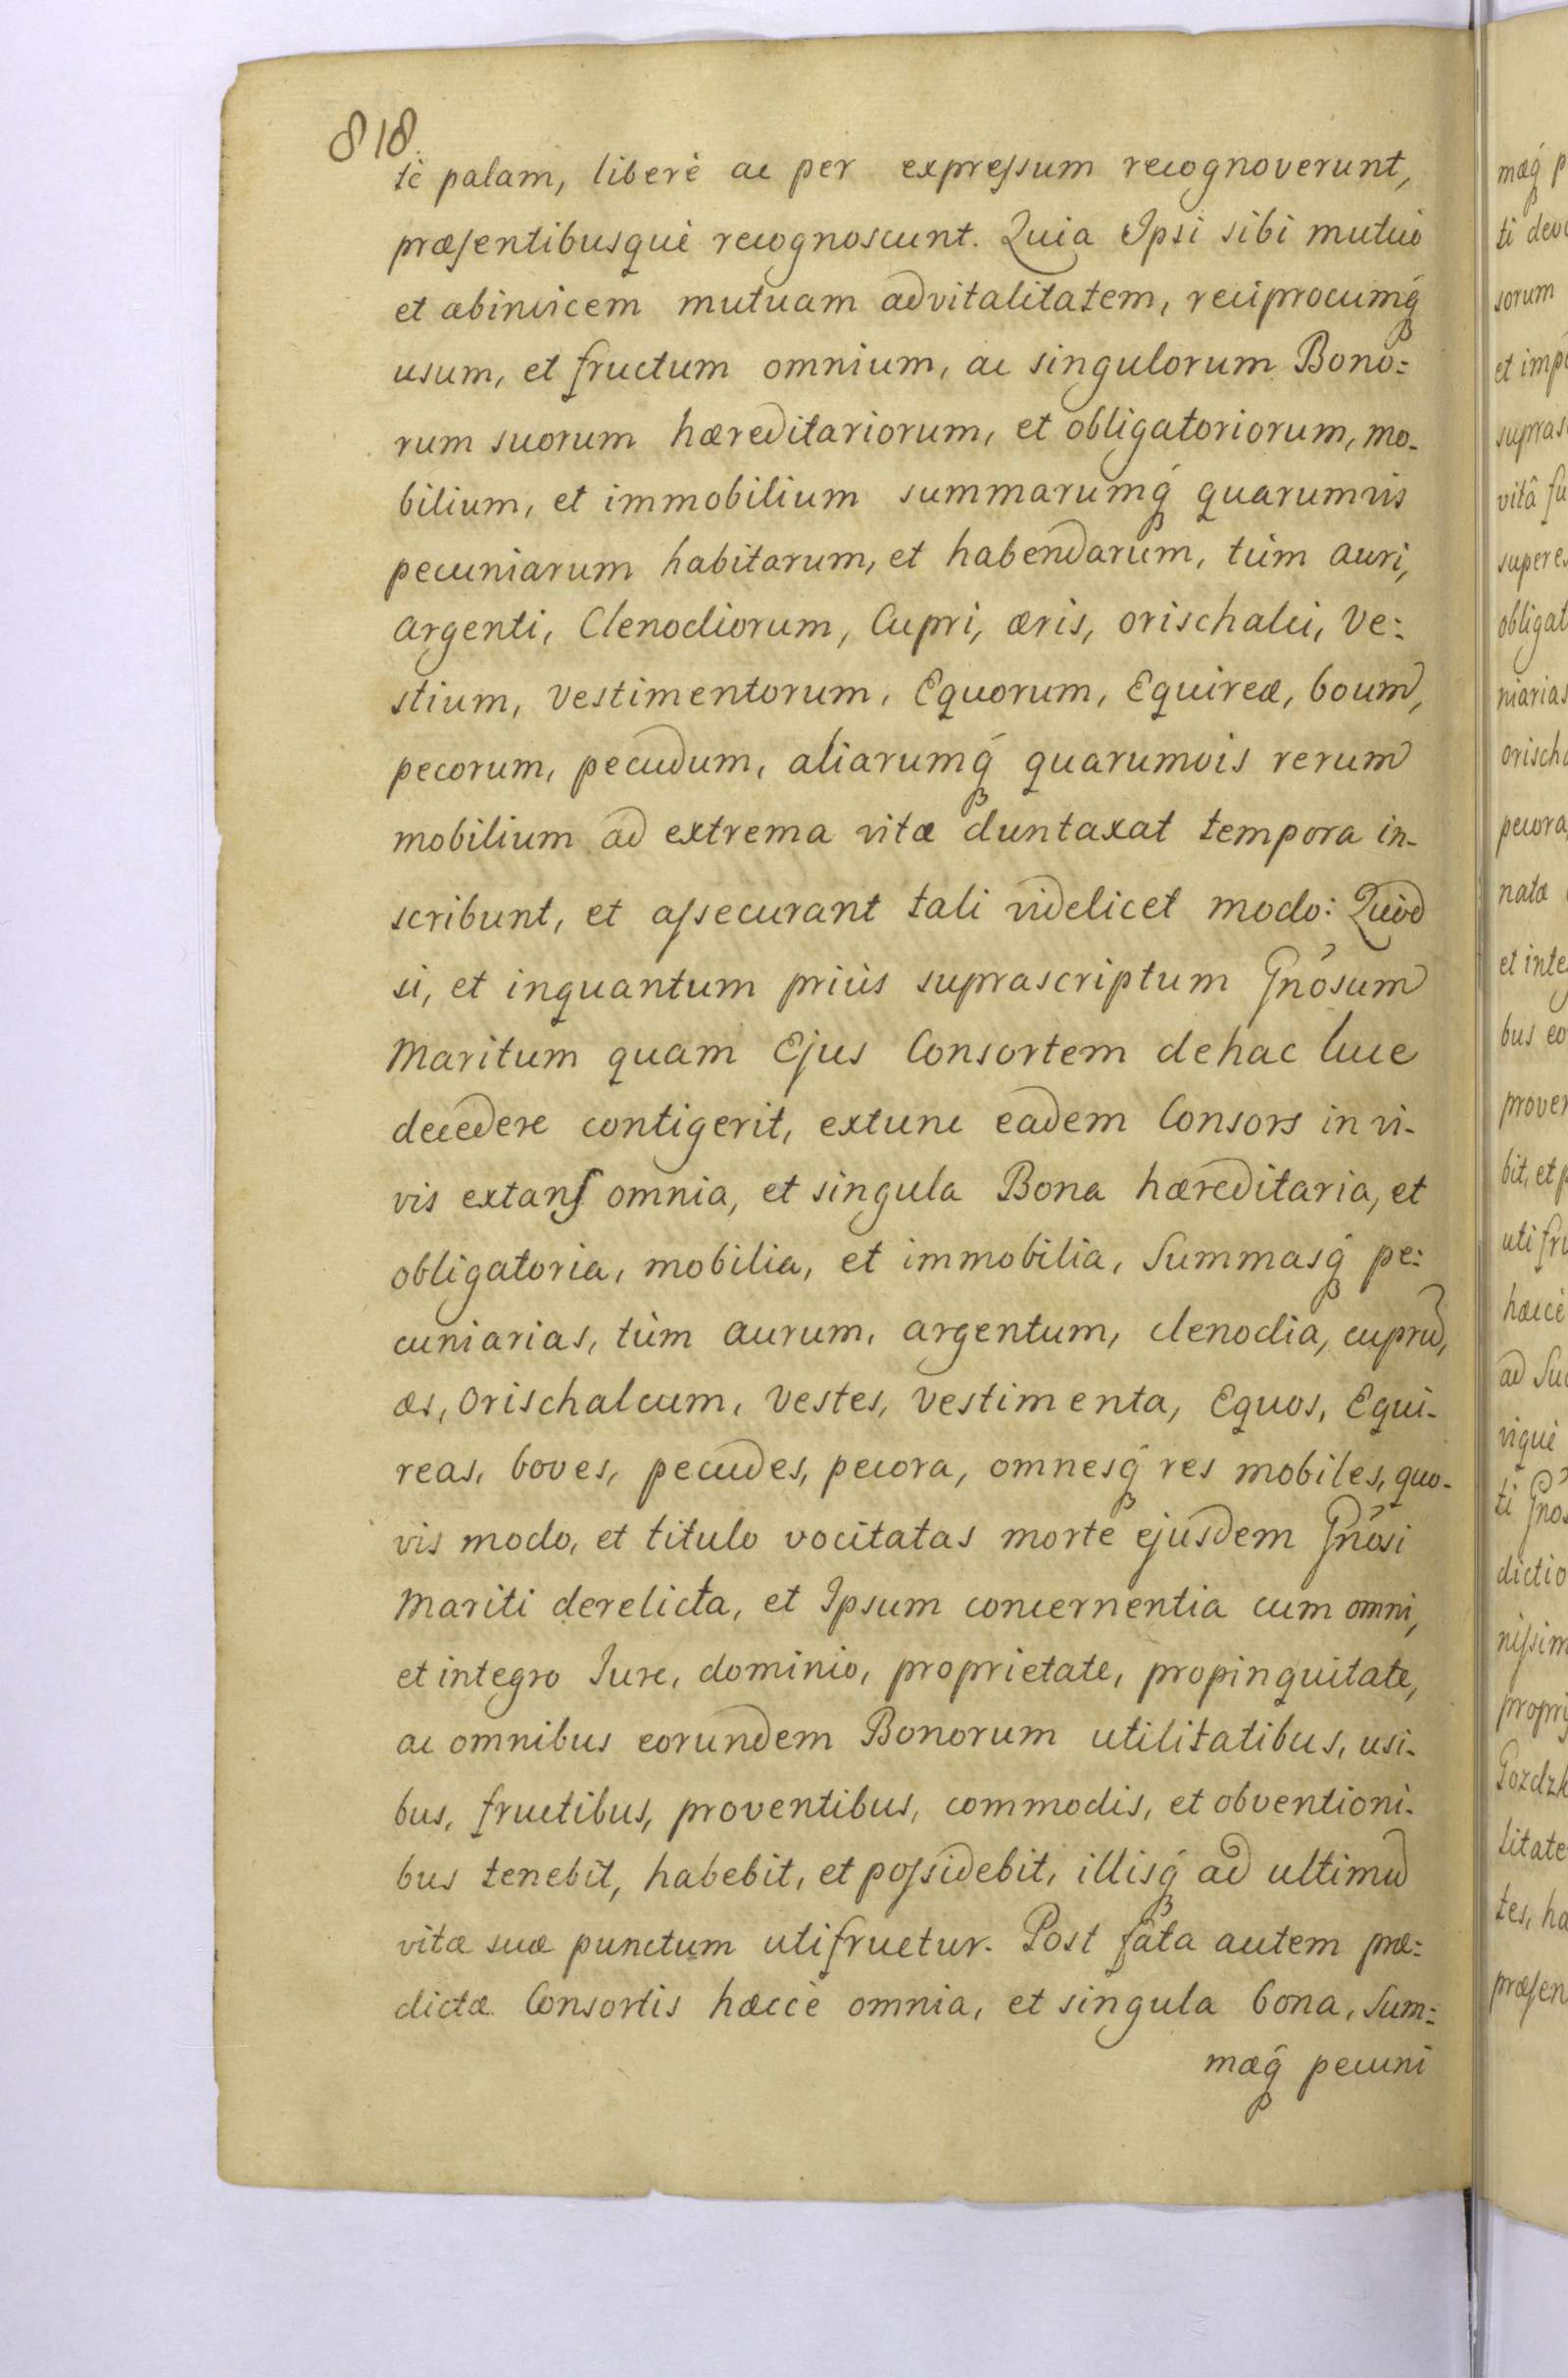 818.
tè palam, liberè ac per expressum recognoverunt,
præsentibusquè recognoscunt. Quia Ipsi sibi mutuò
et abinvicem mutuam advitalitatem, reciprocumq́
usum, et fructum omnium, ac singulorum Bono:
rum suorum hæreditariorum, et obligatoriorum, mo-
bilium, et immobilium summarumq́ quarumvis
pecuniarum habitarum, et habendarum, tùm auri,
argenti, Clenodiorum, Cupri, æris, orischalci, Ve:
stium, Vestimentorum, Equorum, Equireæ, boum,
pecorum, pecudum, aliarumq́ quarumvis rerum
mobilium ad extrema vitæ duntaxat tempora in-
scribunt, et assecurant tali videlicet modo: Quòd
si, et inquantum priùs suprascriptum Gnosum
Maritum quam Ejus Consortem dehac luce
decedere contigerit, extunc eadem Consors in vi-
vis extans omnia, et singula Bona hæreditaria, et
obligatoria, mobilia, et immobilia, Summasq́ pe:
cuniarias, tùm aurum, argentum, clenodia, cuprũ,
æs, Orischalcum, Vestes, Vestimenta, Equos, Equi-
reas, boves, pecudes, pecora, omnesq́ res mobiles, quo-
vis modo, et titulo vocitatas morte ejusdem Gnosi
Mariti derelicta, et Ipsum concernentia cum omni,
et integro Iure, dominio, proprietate, propinquitate,
ac omnibus eorundem Bonorum utilitatibus, usi-
bus, fructibus, proventibus, commodis, et obventioni-
bus tenebit, habebit, et possidebit, illisq́ ad ultimũ
vitæ suæ punctum utifruetur. Post fata autem præ:
dictæ Consortis hæccè omnia, et singula bona, Sum:
mæq́ pecuni
mæq́ p
ti
sorum
et
vitâ
obligat
niarias
pecora,
natæ
et inte
bus eo
prover
bit, et p
uti fr
hæccè
ad Su
viquè
ti Gnos
dictio
nissim
litate
tes, ha
præsen